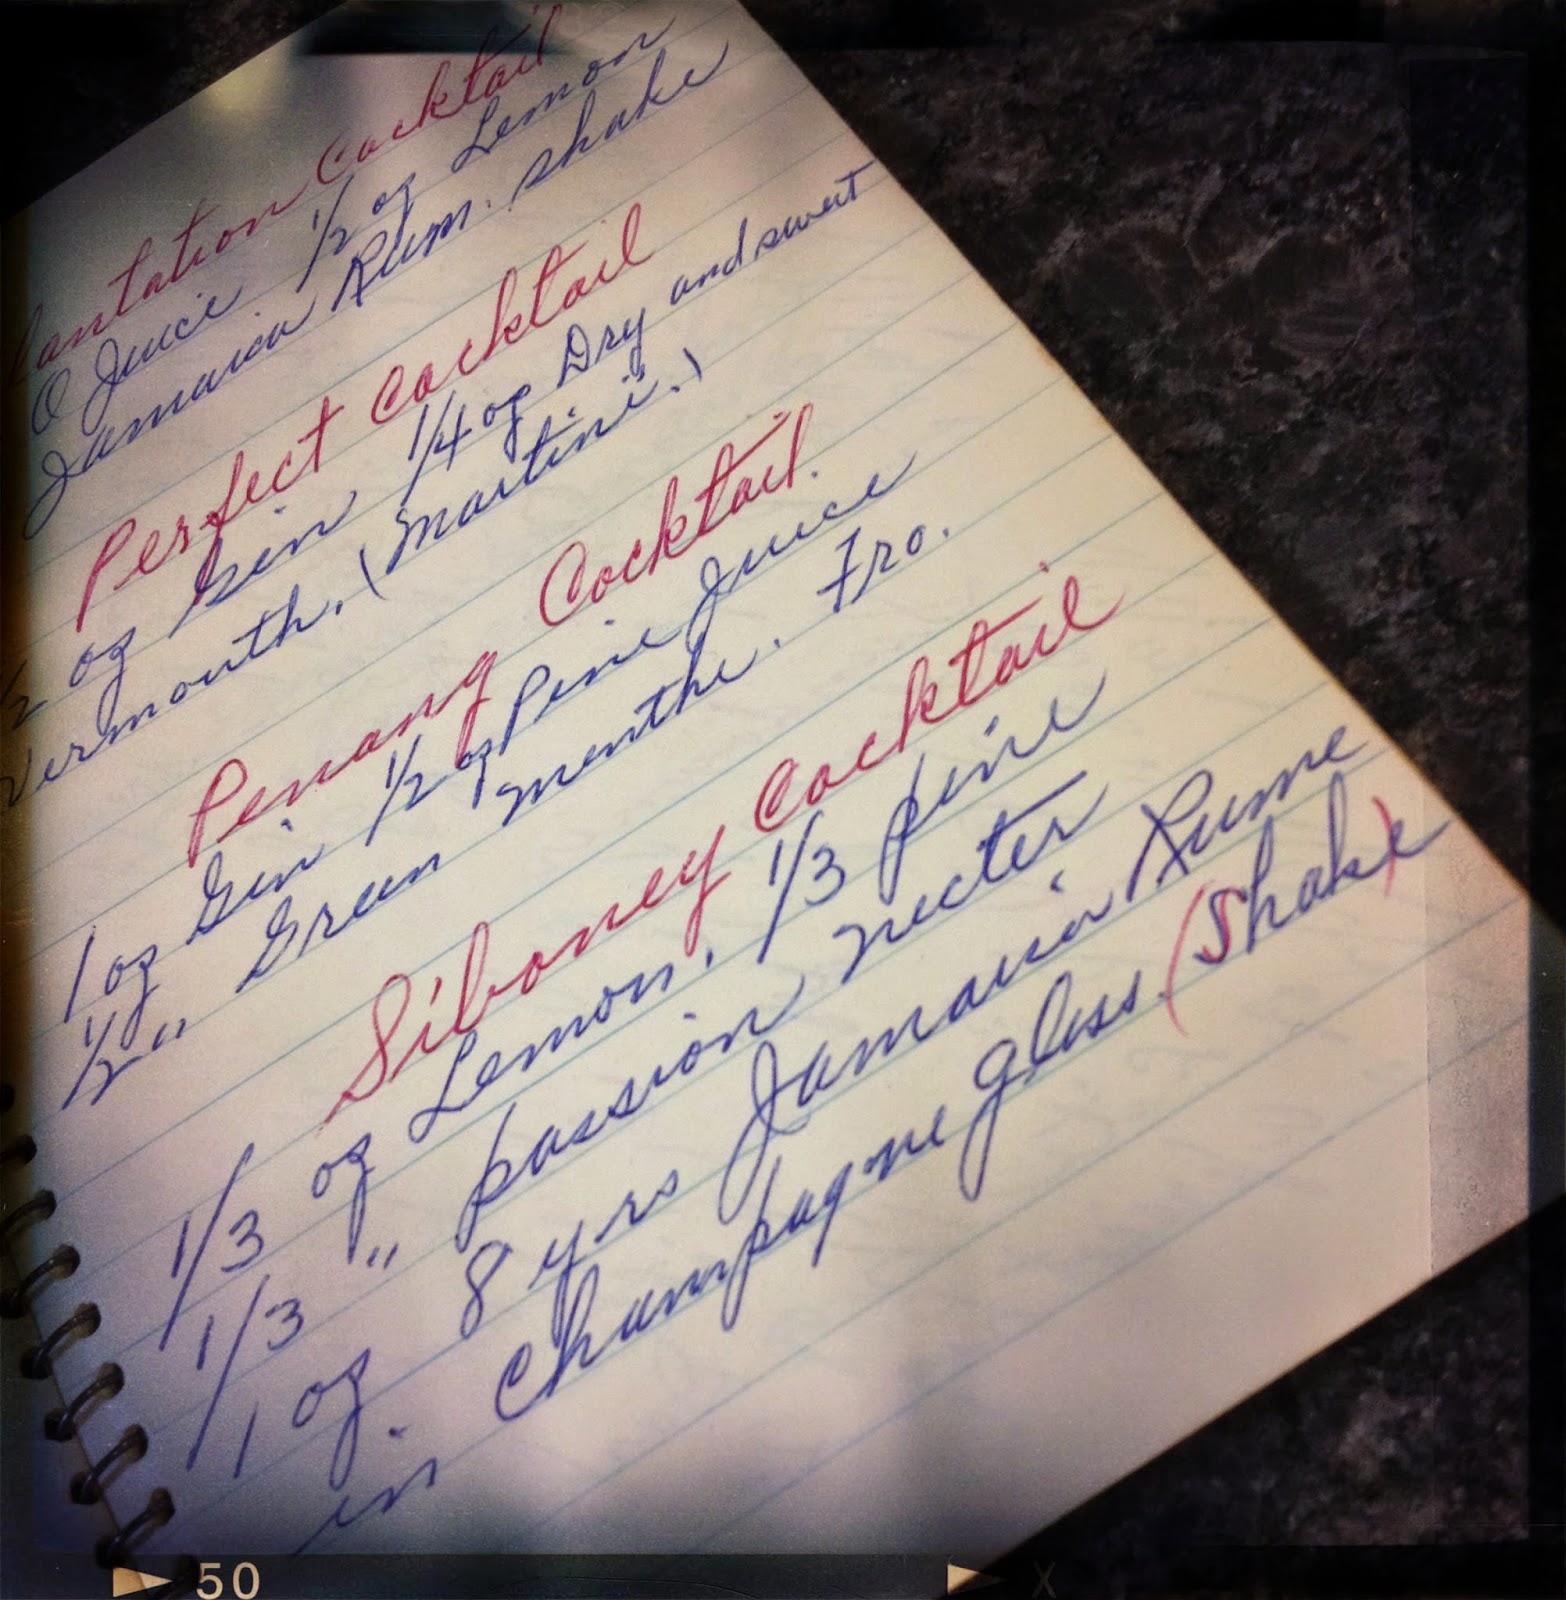 lantation Cocktail
O Juice 1/2 oz Lemon
Jamaica Rum. shake
Perfect Cocktail
1/2 oz Gin 1/4 oz Dry and sweet
Vermouth. (Martini.)
Penang Cocktail.
1 oz Gin 1/2 oz Pine Juice
1/2 " Green menthe. Fro.
Siboney Cocktail
1/3 oz Lemon. 1/3 pine
1/3 " passion necter
1 oz 8 yrs Jamaica Rume
in Champagne glass. (Shake)
50
X